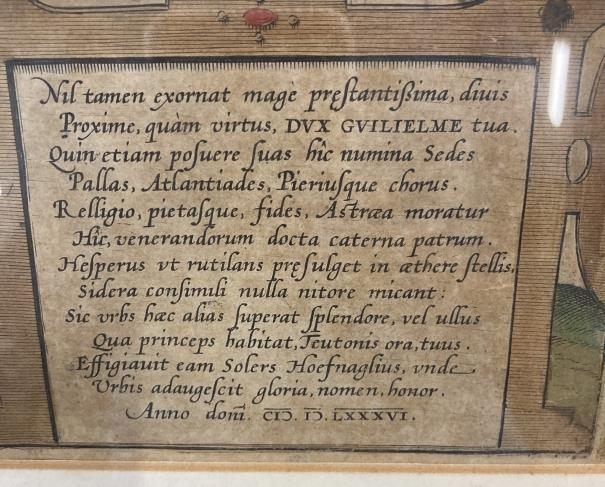 Nil tamen exornat magè pręſtantißima, diuis
Proxime, quàm virtus, DVX GVILIELME tua.
Quin etiam poſuere ſuas hîc numina Sedes
Pallas, Atlantiades, Pieriuſque chorus.
Relligio, pietaſque, fides, Astræa moratur
Hîc, venerandorum docta caterna patrum.
Heſperus vt rutilans pręfulget in æthere ſtellis,
Sidera conſimili nulla nitore micant:
Sic vrbs hæc alias ſuperat ſplendore, vel ullius
Qua princeps habitat, Teutonis ora, tuus.
Effigiauit eam Solers Hoefnaglius, vnde
Vrbis adaugeſcit gloria, nomen, honor.
Anno dom̃. CIↃ. IↃ. LXXXVI.